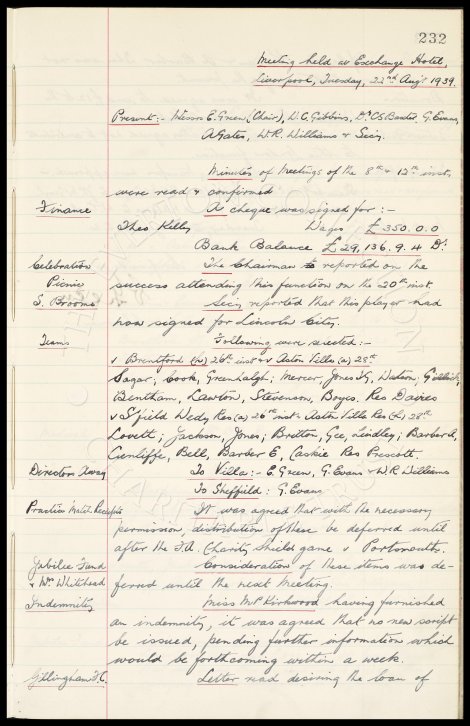 232
Meeting held at Exchange Hotel,
Liverpool, Tuesday, 22nd Aug't 1939.
Present:- Messrs E. Green (Chair), W.C. Gibbins, Dr C.S. Baxter, G. Evans,
A Gates, W.R. Williams & Secy.
Minutes of Meetings of the 8th & 12th inst.
were read & confirmed
Finance A cheque was signed for :-
Theo Kelly Wages £350.0.0
Bank Balance £29,136.9.4 Dr.
Celebration The Chairman reported on the
Picnic success attending this function on the 20th inst.
S. Broome Secy reported that this player had
now signed for Lincoln City.
Teams Following were selected:-
v Brentford (h) 26th inst & v Aston Villa (a) 28th
Sagar; Cook, Greenhalgh; Mercer, Jones TG, Watson; Gillick,
Bentham, Lawton, Stevenson, Boyes. Res Davies
v S'field Wedy Res (a) 26th inst & Aston Villa Res (h) 28th
Lovett; Jackson, Jones; Britton, Gee, Lindley; Barber A,
Cunliffe, Bell, Barber E, Caskie Res Prescott.
Directors Away To Villa:- E. Green, G. Evans & W.R. Williams
To Sheffield: G. Evans
Practice Match Receipts It was agreed that with the necessary
permission, distribution of these be deferred until
after the F.A. Charity Shield game v Portsmouth.
Jubilee Fund Consideration of these items was de-
& Mr. Whitehead ferred until the next meeting.
Indemnity Miss M P Kirkwood having furnished
an indemnity, it was agreed that no new script
be issued, pending further information which
would be forthcoming within a week.
Gillingham F.C. Letter read desiring the loan of